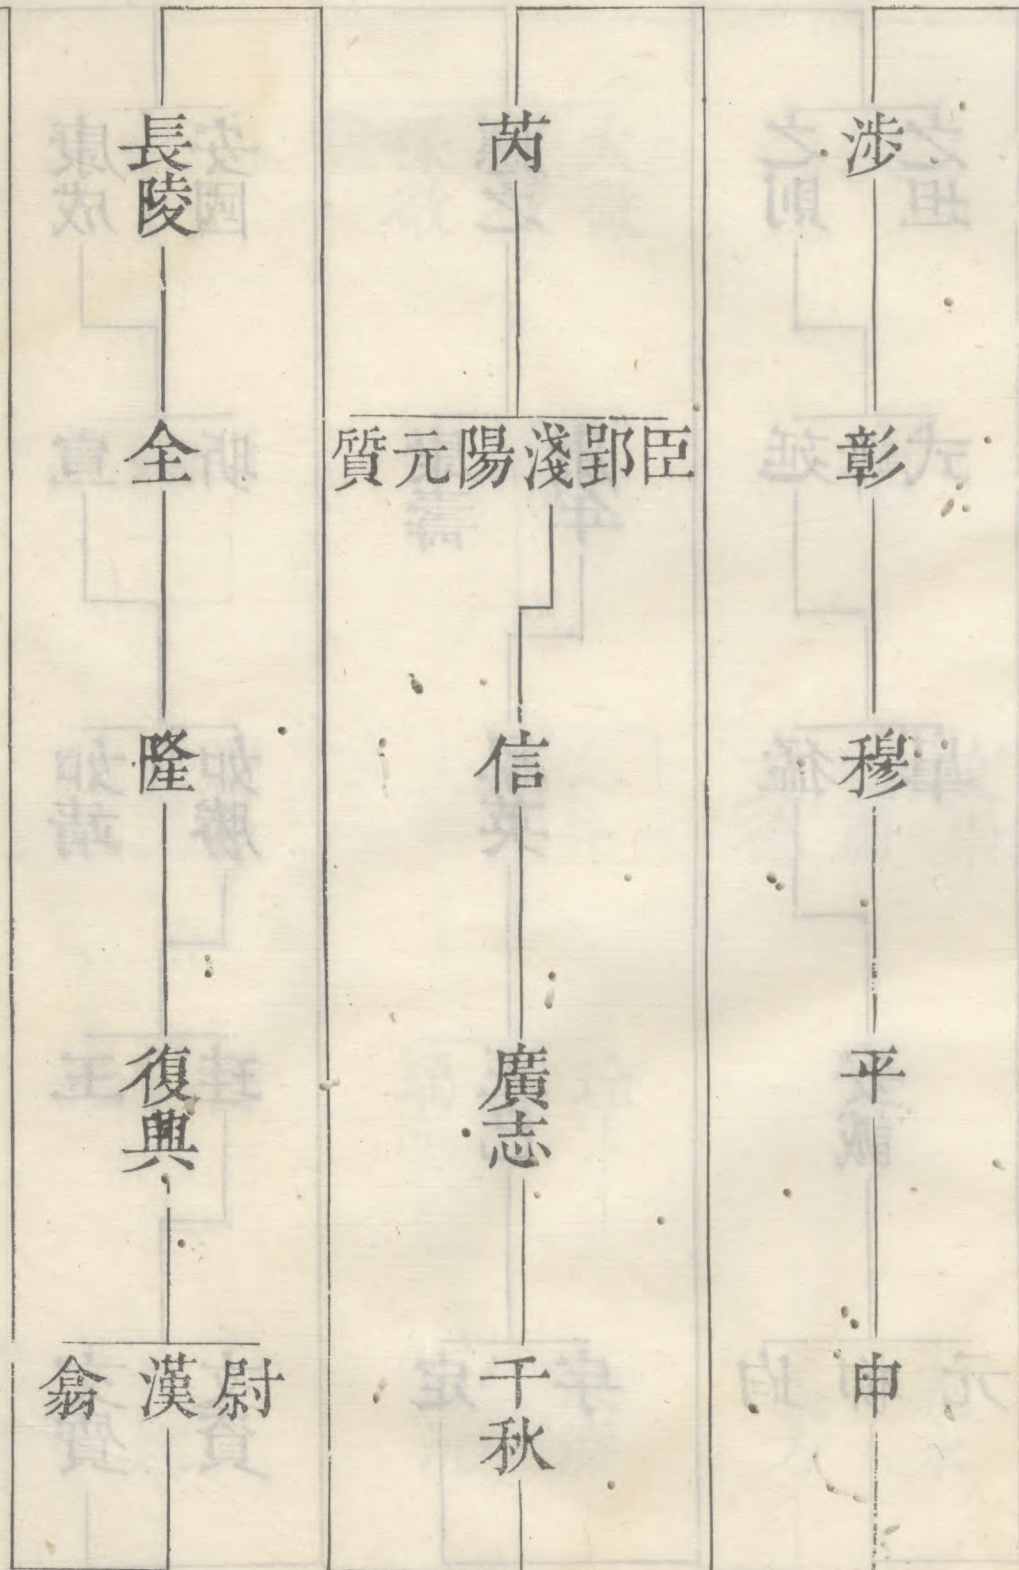 涉
彰
穆
平
申
芮
臣郢淺陽元質
信
廣志
千秋
長陵
全
隆
復興
尉漢翕